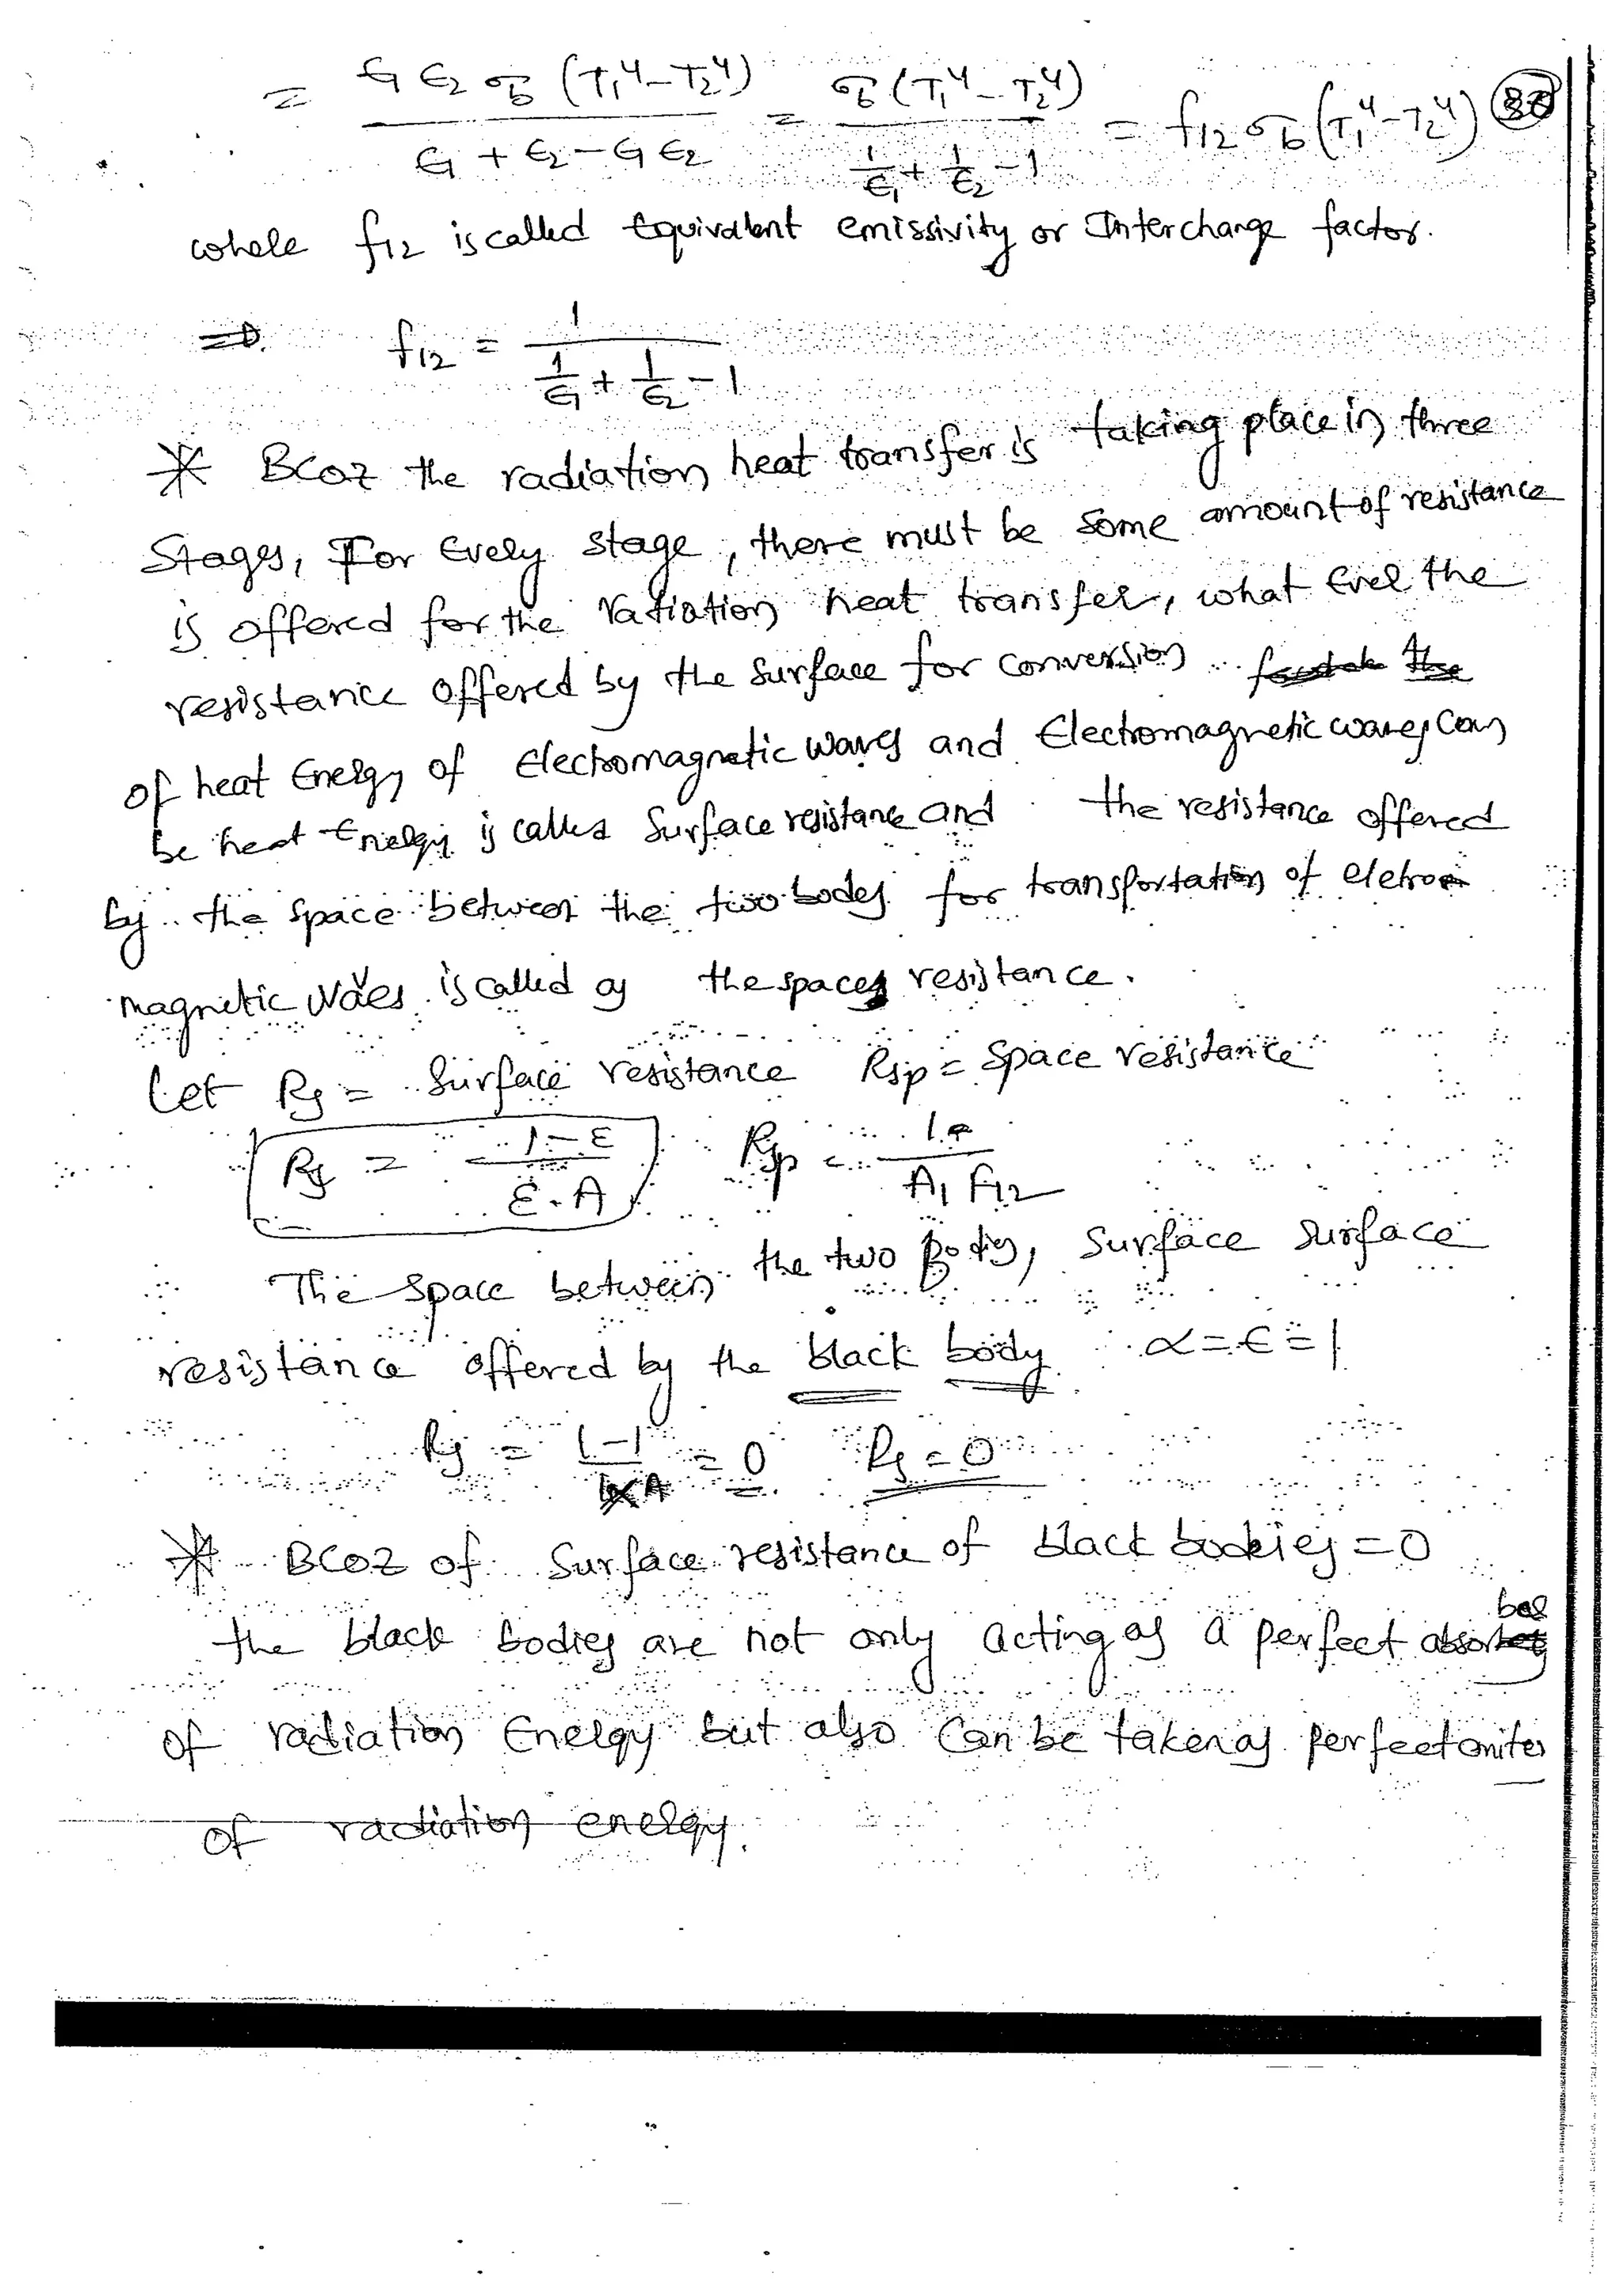 = ϵ1 ϵ2 σb (T1⁴-T2⁴) / ϵ1 + ϵ2 - ϵ1 ϵ2 = σb (T1⁴-T2⁴) / 1/ϵ1 + 1/ϵ2 - 1 = f12 σb (T1⁴-T2⁴)
where f12 is called Equivalent emissivity or Interchange factor.
⇒ f12 = 1 / 1/ϵ1 + 1/ϵ2 - 1
* BCOZ the radiation heat transfer is taking place in three
Stages, For Every stage, there must be some amount of resistance
is offered for the radiation heat transfer, what Ever the
resistance offered by the surface for conversion
of heat Energy of Electromagnetic waves and Electromagnetic waves Can
be heat Energy is called Surface resistance and the resistance offered
by the space between the two bodies for transportation of eletro
magnetic waves is called as the space resistance.
Let Rs = Surface resistance Rsp = Space resistance
Rs = 1-ε / ε.A Rsp = 1 / A1 F12
The space between the two Bodies, Surface Surface
resistance offered by the black body α = ϵ = 1
Rs = 1-1 / 1×A = 0 Rs = 0
* BCOZ of Surface resistance of black bodies = 0
the black bodies are not only acting as a perfect absorber
of radiation Energy but also Can be taken as perfect emiter
of radiation energy.